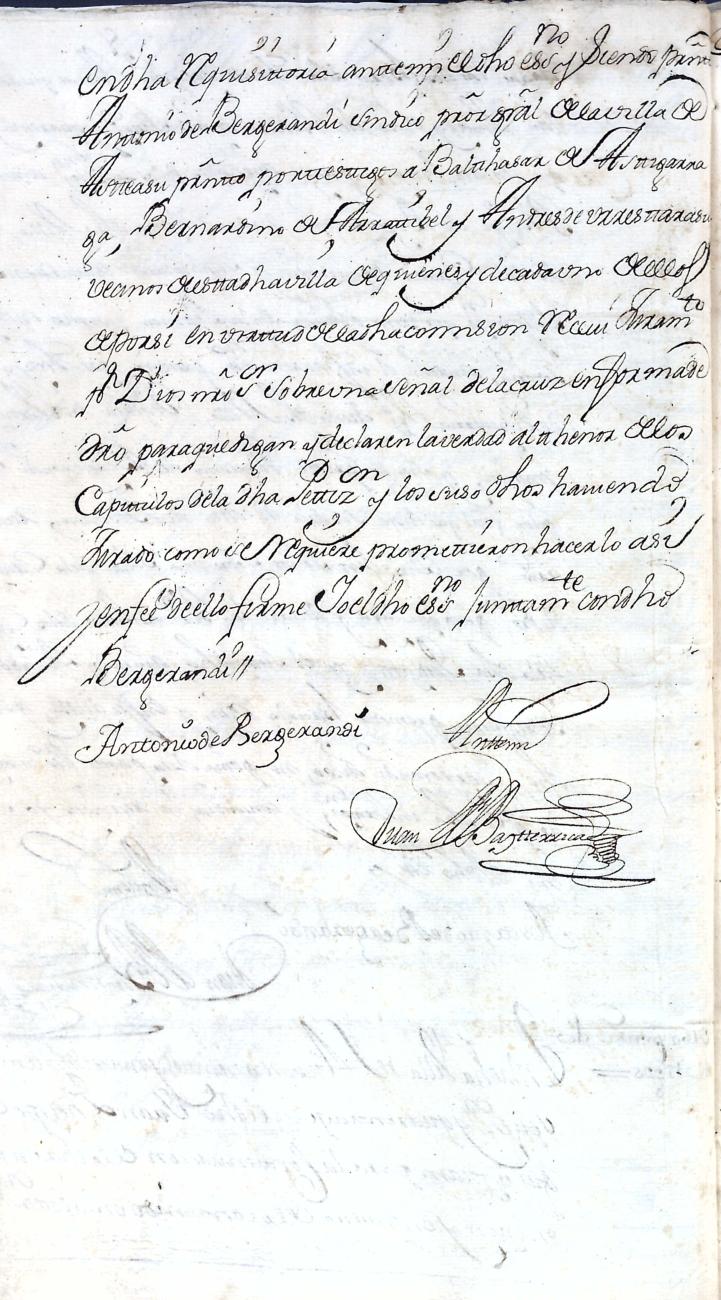 en dha Requisittoria anttemi el dho essno y siendo press.te
Anttonio de Bergerandi sindico pror gral de la villa de
Asteasu pressto por ttesttigos a Balthasar de Astigarra
ga, Bernardino de Arrattibel y Andres de vrresttarasu
vecinos de estta dha villa de quienes y de cada vno de ellos
de por si en virttud de la dha comision Recivi Juramto
pr Dios nro sr sobre vna señal de la cruz en forma de
dro para que digan y declaren la verdad al thenor de los
Capittulos de la dha Pettizon y los suso dhos haviendo
Jurado como se Requiere promettieron hacerlo asi
y en fee de ello firme Yo el dho essno Junttamte con dho
Bergerandi //
Antonio de Bergerandi
Anttemi
Juan de Basterrica